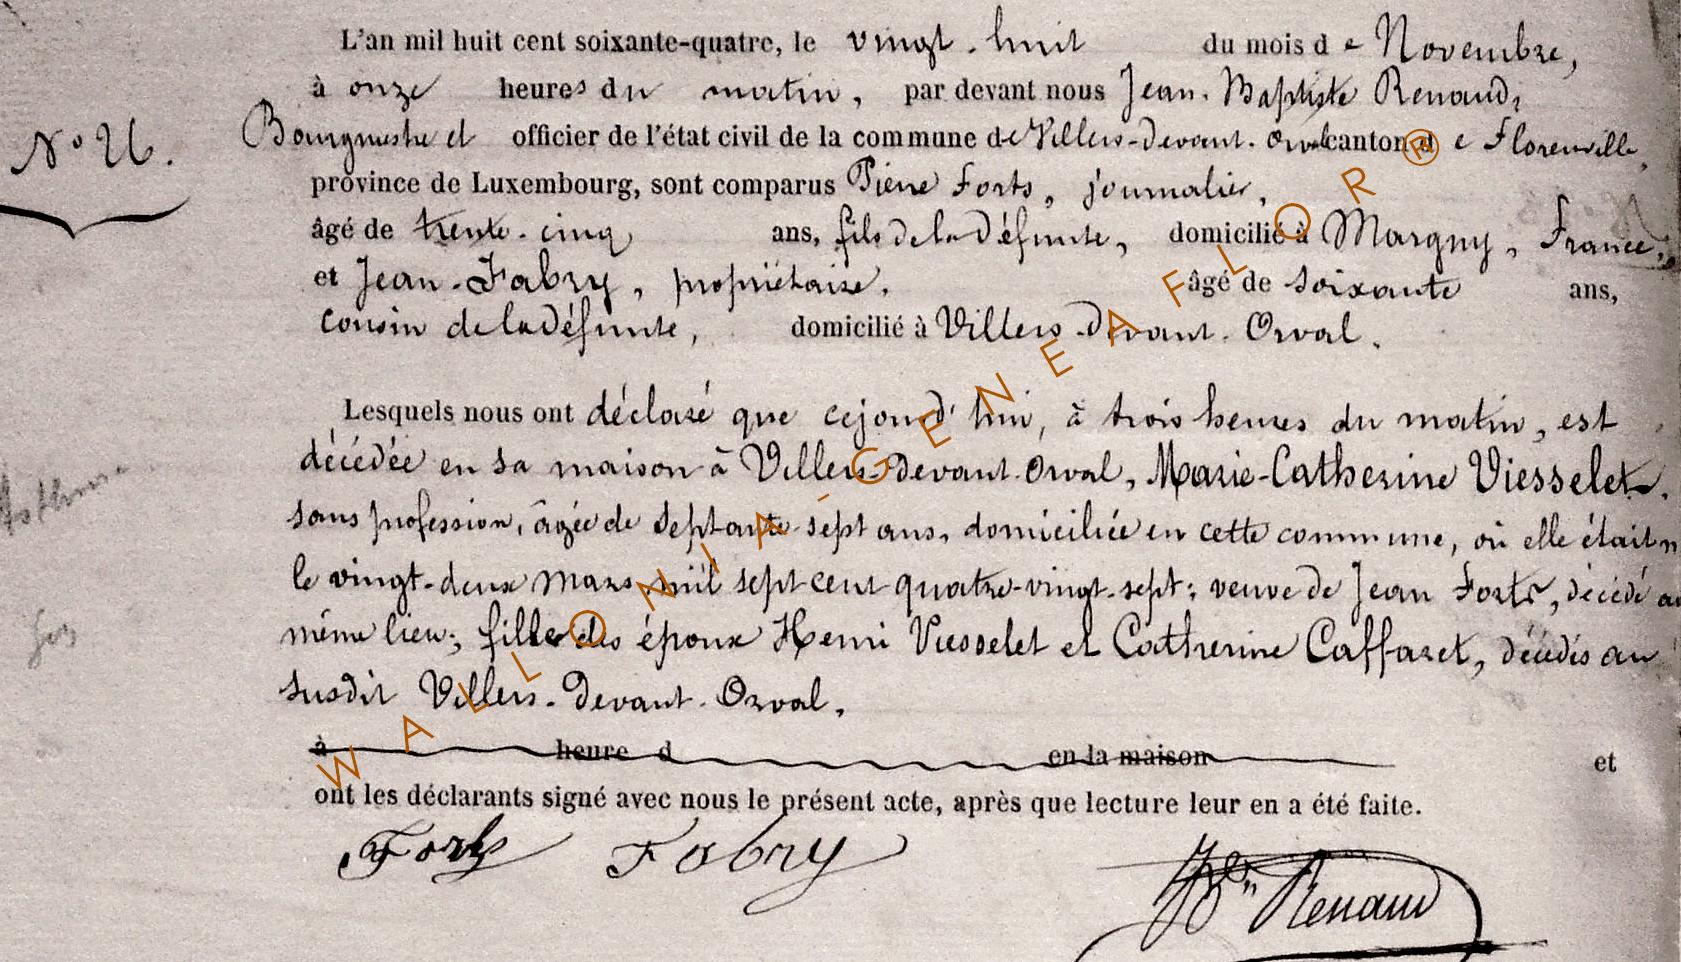 L'an mil huit cent soixante-quatre, le vingt-huit du mois de Novembre,
à onze heures du matin, par devant nous Jean-Baptiste Renaud,
N° 26. Bourgmestre et officier de l'état civil de la commune de Villers-devant-Orval canton de Florenville,
province de Luxembourg, sont comparus Pierre Forts, journalier,
âgé de trente-cinq ans, fils de la défunte, domicilié à Margny, France,
et Jean Fabry, propriétaire, âgé de soixante ans,
cousin de la défunte, domicilié à Villers-devant-Orval.
Lesquels nous ont déclaré que cejourd'hui, à trois heures du matin, est
décédée en sa maison à Villers-devant-Orval, Marie-Catherine Viesselet,
Asthme
sans profession, âgée de septante-sept ans, domiciliée en cette commune, où elle était n
le vingt-deux mars mil sept cent quatre-vingt-sept; veuve de Jean Forts, décédé au
même lieu; fille des époux Henri Viesselet et Catherine Caffaret, décédés au
susdit Villers-devant-Orval.
à heure d en la maison et
ont les déclarants signé avec nous le présent acte, après que lecture leur en a été faite.
Forts Fabry JBte Renaud
WALLONIA-GENEAFLOR®